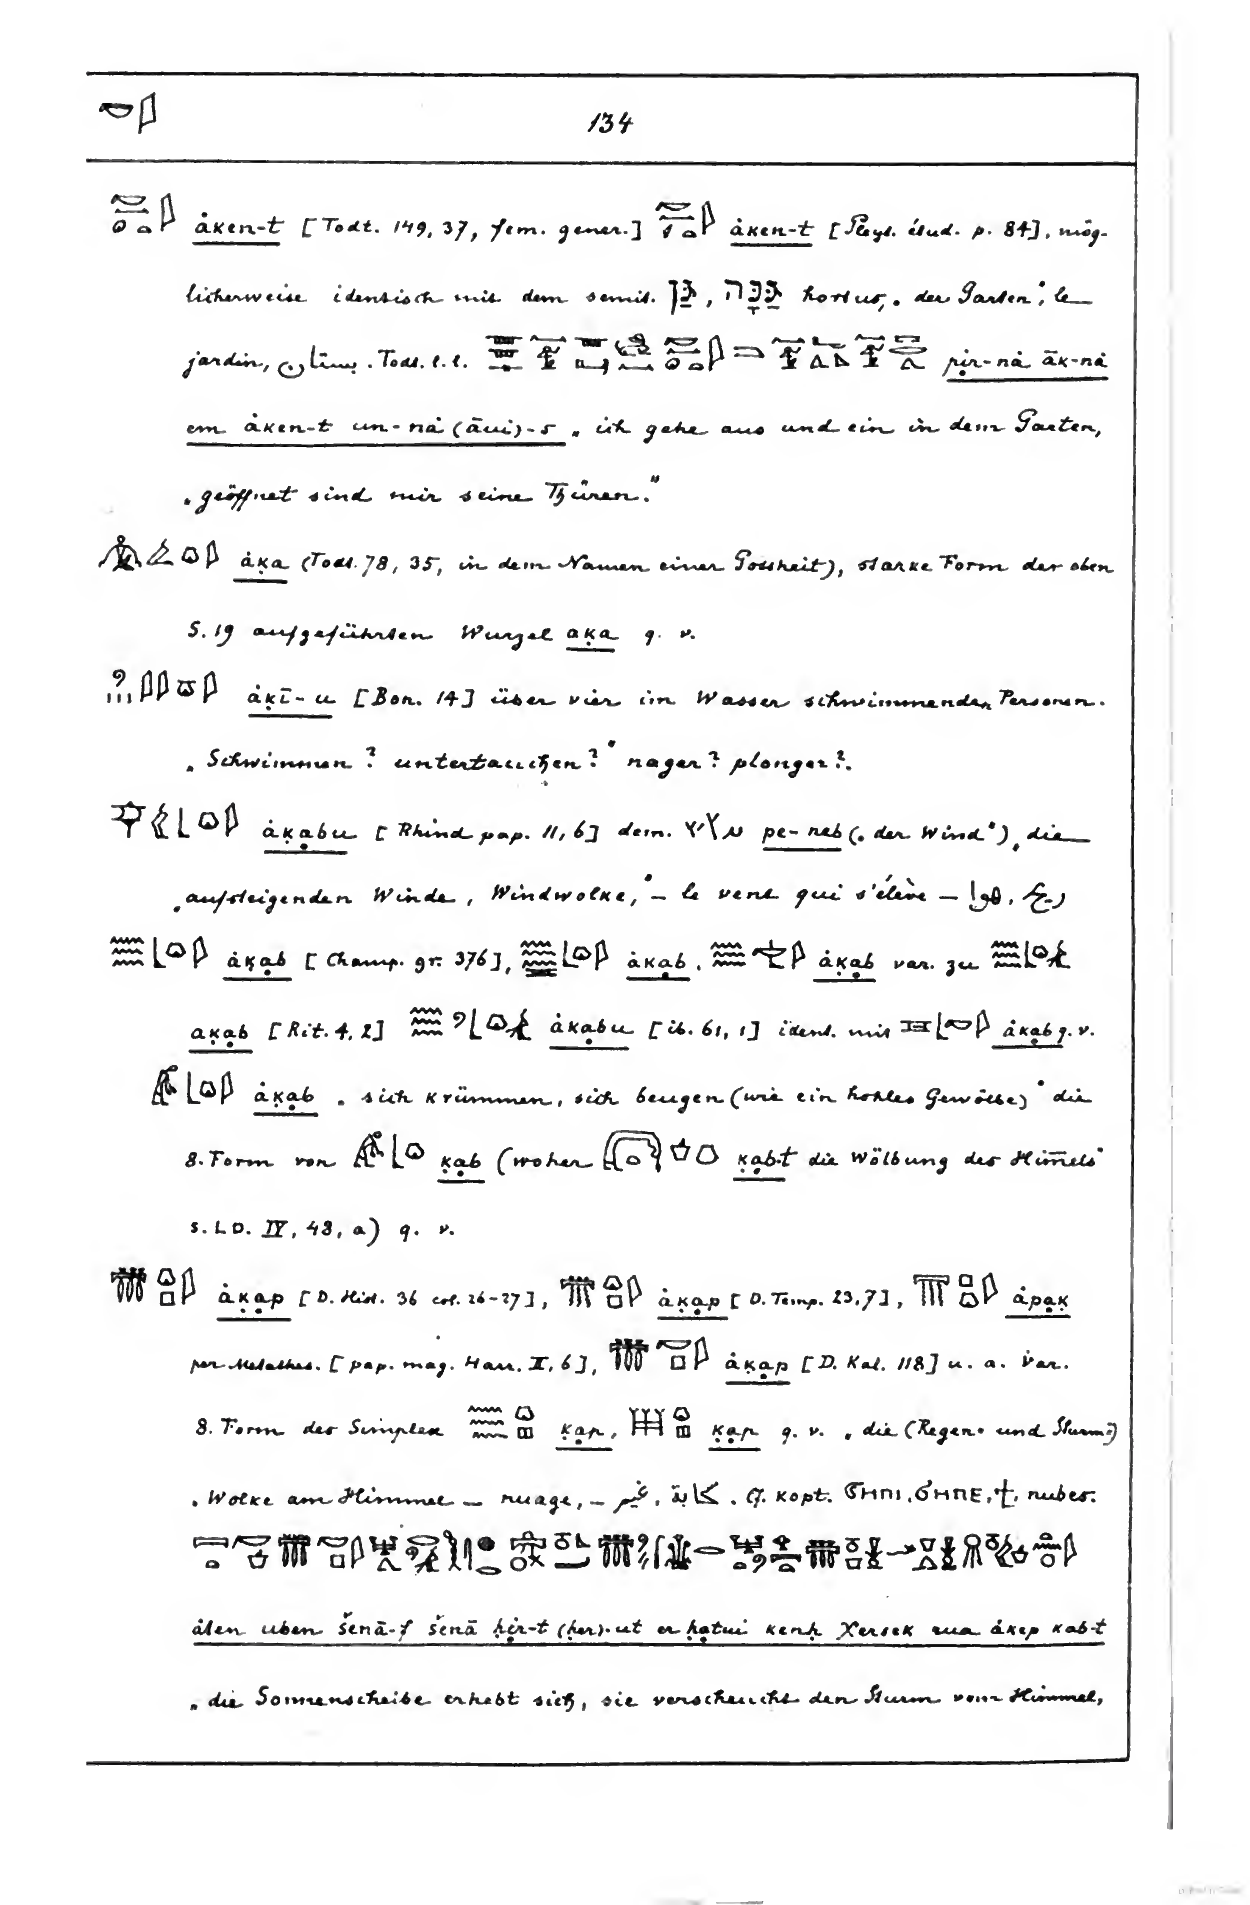 134
ȧken-t [Todt. 149, 37, fem. gener.] ȧken-t [Pleyt. étud. p. 84], mög-
licherweise identisch mit dem semit. גן, גנה hortus, „der Garten", le
jardin, بستان. Todt. l. l. pir-nȧ āk-nȧ
em ȧken-t un-nȧ (āui)-s „ich gehe aus und ein in dem Garten,
„geöffnet sind mir seine Thüren."
ȧḳa (Todt. 78, 35, in dem Namen einer Gottheit), starke Form der oben
S. 19 aufgeführten Wurzel aḳa q. v.
ȧḳī-u [Bon. 14] über vier im Wasser schwimmenden Personen.
„Schwimmen? untertauchen?" nager? plonger?.
ȧḳabu [Rhind pap. 11, 6] dem. pe-neb („der Wind"), die
„aufsteigenden Winde, Windwolke," – le vent qui s'élève –
ȧḳab [Champ. gr. 376], ȧkab, ȧḳab var. zu
aḳab [Rit. 4, 2] ȧkabu [ib. 61, 1] ident. mit ȧkab q. v.
ȧḳab „sich krümmen, sich beugen (wie ein hohles Gewölbe)" die
8. Form von ḳab (woher ḳab-t die Wölbung des Him̅els"
s. LD. IV, 48, a) q. v.
ȧḳȧp [D. Hist. 36 col. 26-27], ȧḳap [D. Temp. 23, 7], ȧpaḳ
per Metathes. [pap. mag. Harr. X, 6], ȧḳap [D. Kal. 118] u. a. Var.
8. Form des Simplex ḳap, ḳap q. v. „die (Regen- und Sturm-)
„Wolke am Himmel – nuage, – غيم, Cf. kopt. ϬΗΠΙ, ϬΗΠΕ, Ϯ, nubes.
ȧten uben šenā-f šenā ḥir-t (ḥer)-ut er ḥatui kenḥ χersek rua ȧkep kab-t
„die Sonnenscheibe erhebt sich, sie verscheucht den Sturm vom Himmel,